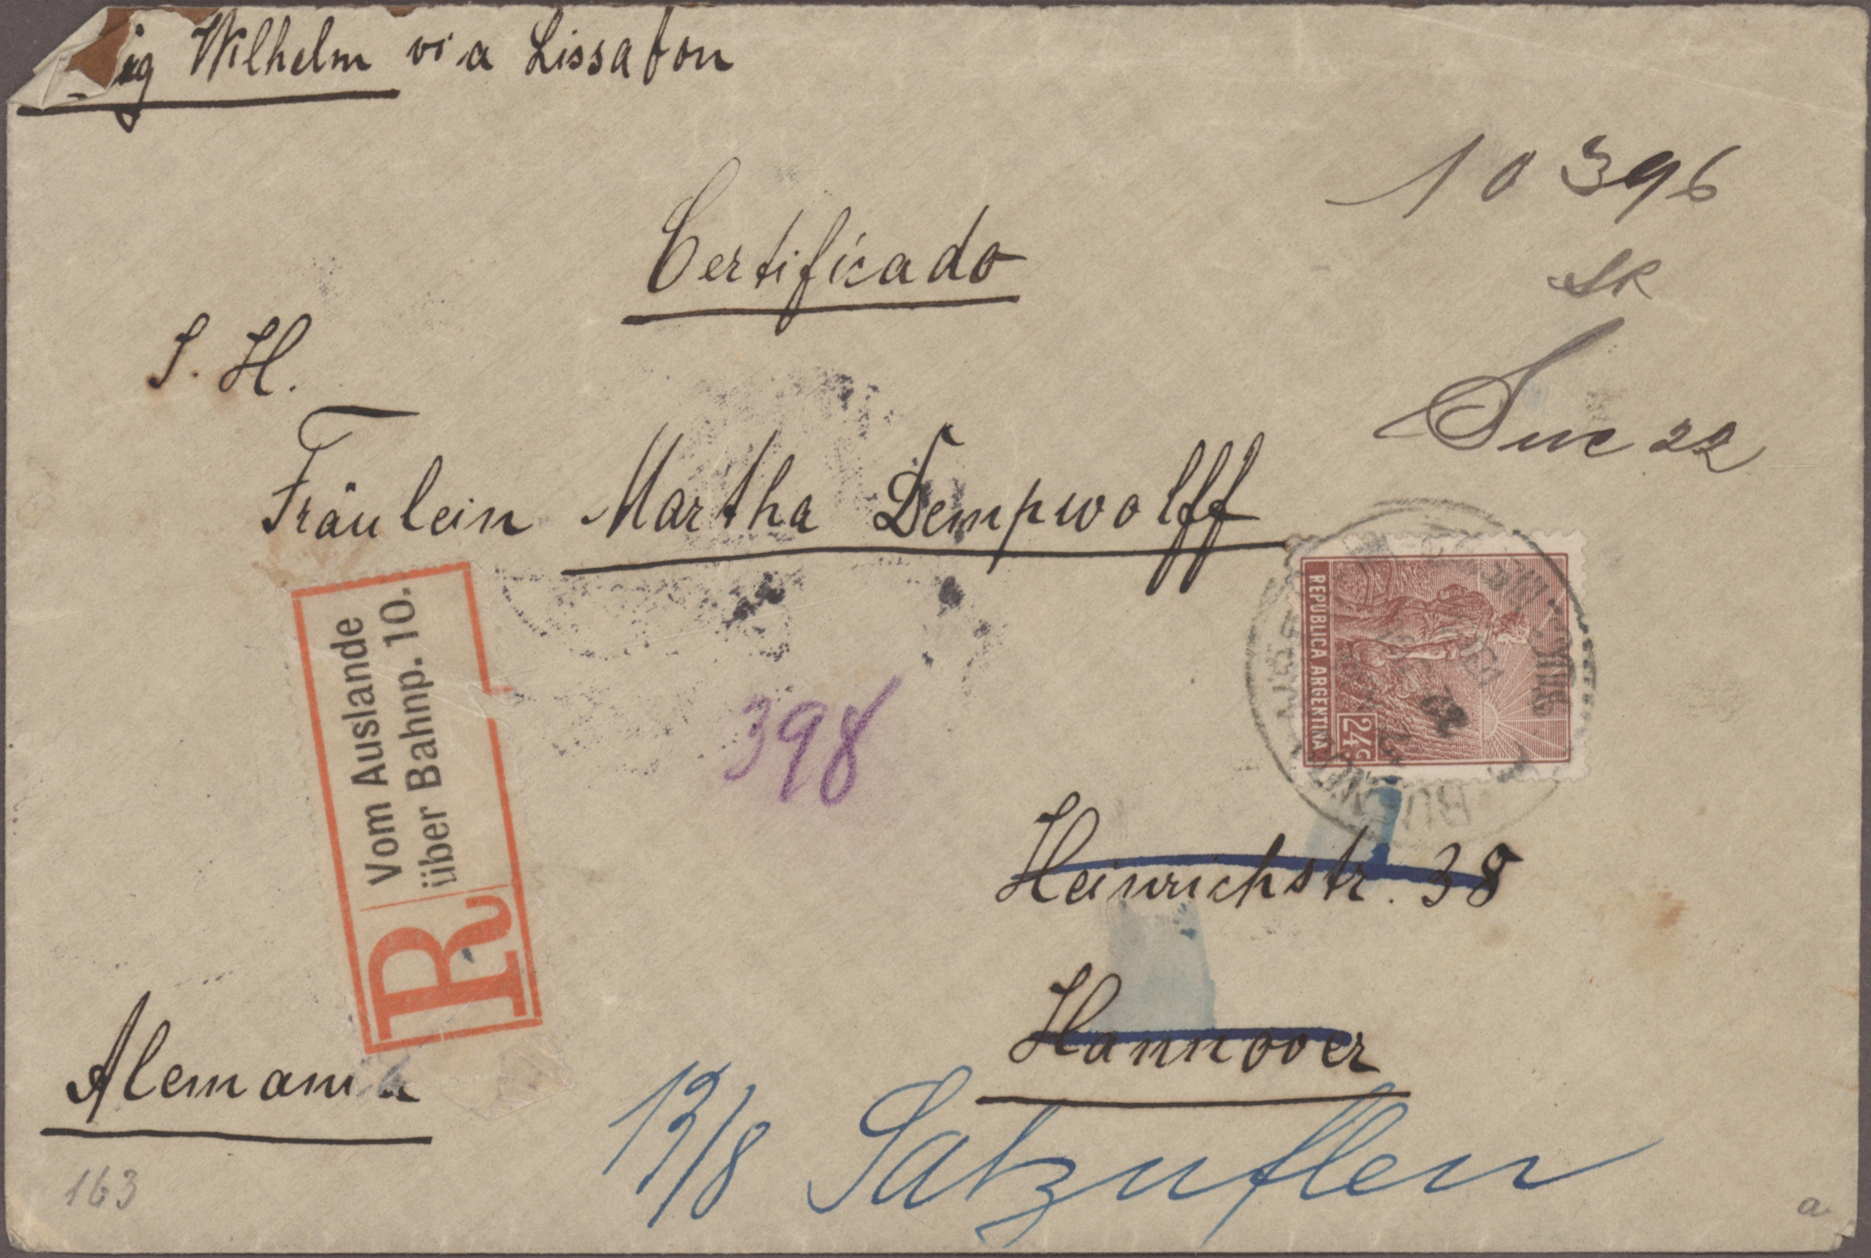 ig Wilhelm via Lissabon
10396
Certificado
SR
S. H.
Suc 22
Fräulein Martha Dempwolff
REPUBLICA ARGENTINA
24c
R
Vom Auslande
über Bahnp. 10.
398
Heinrichstr. 38
Hannover
Alemania
13/8 Salzuflen
163
a